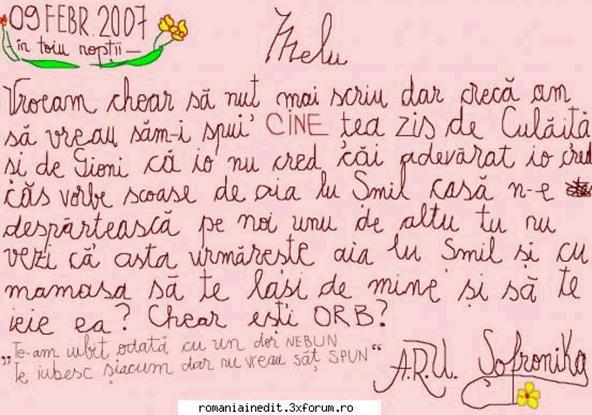 09 FEBR. 2007
- în toiu nopții -
Melu
Vroeam chear să nuț mai scriu dar crecă am
să vreau săm-i spui' CINE țea zis de Culăiță
si de Gioni că io nu cred căi adevărat io cred
căs vorbe scoase de aia lu Smil casă n-e
despărtească pe noi unu de altu tu nu
vezi că asta urmăreste aia lu Smil și cu
mamasa să te lași de mine și să te
ieie ea? Chear ești ORB?
„Te-am iubit odată cu un dor NEBUN
Te iubesc șiacum dar nu vreau săț SPUN“
A.R.U. Sofronika
romaniainedit.3xforum.ro